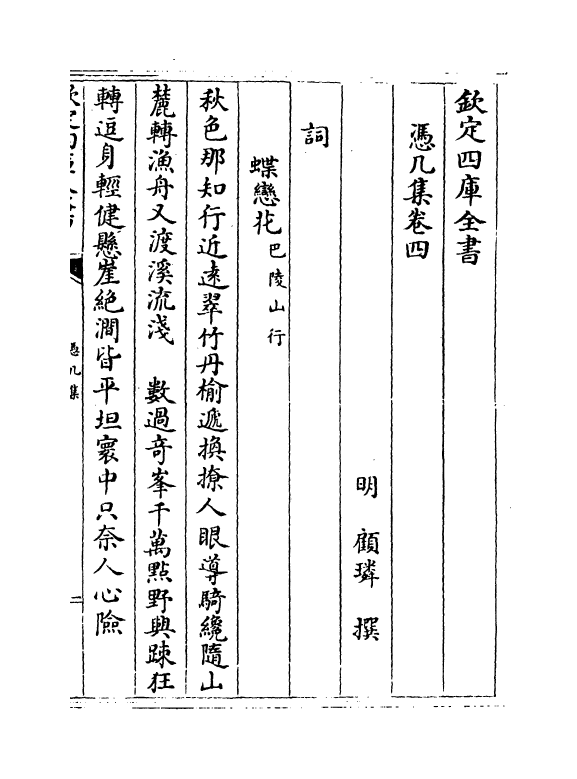 欽定四庫全書
憑几集卷四
明 顧璘 撰
詞
蝶戀花巴陵山行
秋色那知行近遠翠竹丹榆遞換撩人眼導騎纔隨山
麓轉漁舟又渡溪流淺 數過奇峯千萬點野興踈狂
轉逗身輕健懸崖絶澗皆平坦寰中只奈人心險
憑几集